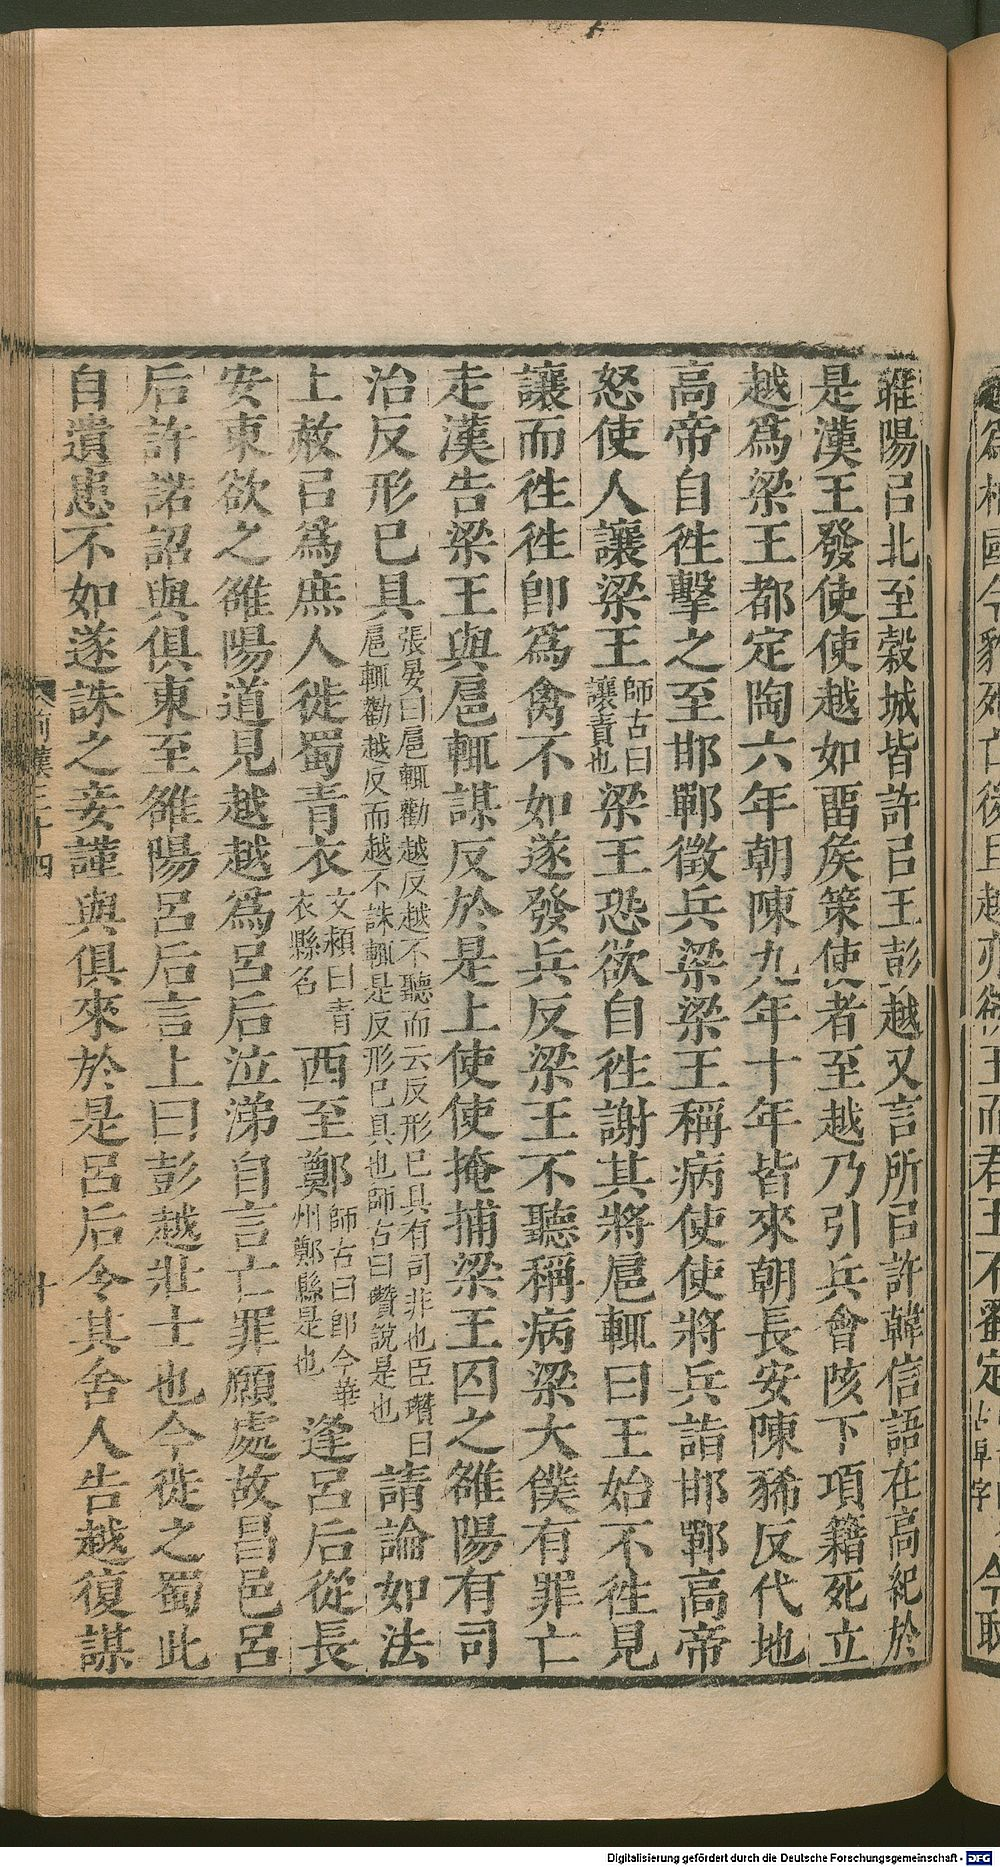 爲相國今豹死亡後且越亦欲王而君王不蚤定
今取
睢陽㠯北至穀城皆許㠯王彭越又言所㠯許韓信語在高紀於
是漢王發使使越如畱矦策使者至越乃引兵會垓下項籍死立
越爲梁王都定陶六年朝陳九年十年皆來朝長安陳豨反代地
高帝自徃擊之至邯鄲徵兵梁梁王稱病使使將兵詣邯鄲高帝
怒使人讓梁王師古曰讓責也梁王恐欲自徃謝其將扈輒曰王始不徃見
讓而徃徃卽爲禽不如遂發兵反梁王不聽稱病梁大僕有罪亡
走漢告梁王與扈輒謀反於是上使使掩捕梁王囚之雒陽有司
治反形已具張晏曰扈輒勸越反越不聽而云反形已具有司非也臣瓚曰扈輒勸越反而越不誅輒是反形已具也師古曰瓚說是也請論如法
上赦㠯爲庶人徙蜀青衣文穎曰青衣縣名西至鄭師古曰卽今華州鄭縣是也逢呂后從長
安東欲之雒陽道見越越爲呂后泣涕自言亡罪願處故昌邑呂
后許諾詔與俱東至雒陽呂后言上曰彭越壯士也今徙之蜀此
自遺患不如遂誅之妾謹與俱來於是呂后令其舍人告越復謀
前漢三十四
十
Digitalisierung gefördert durch die Deutsche Forschungsgemeinschaft - DFG